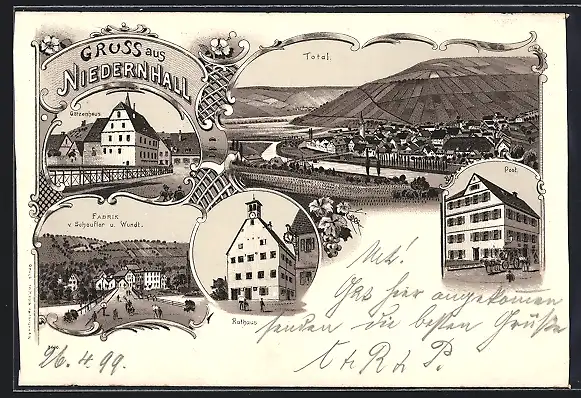 GRUSS aus
NIEDERNHALL
Total.
Götzenhaus.
Post.
FABRIK
v. Schaufler u. Wundt.
Rathaus
Gut hier angekommen
senden die besten Grüsse
26.4.99.